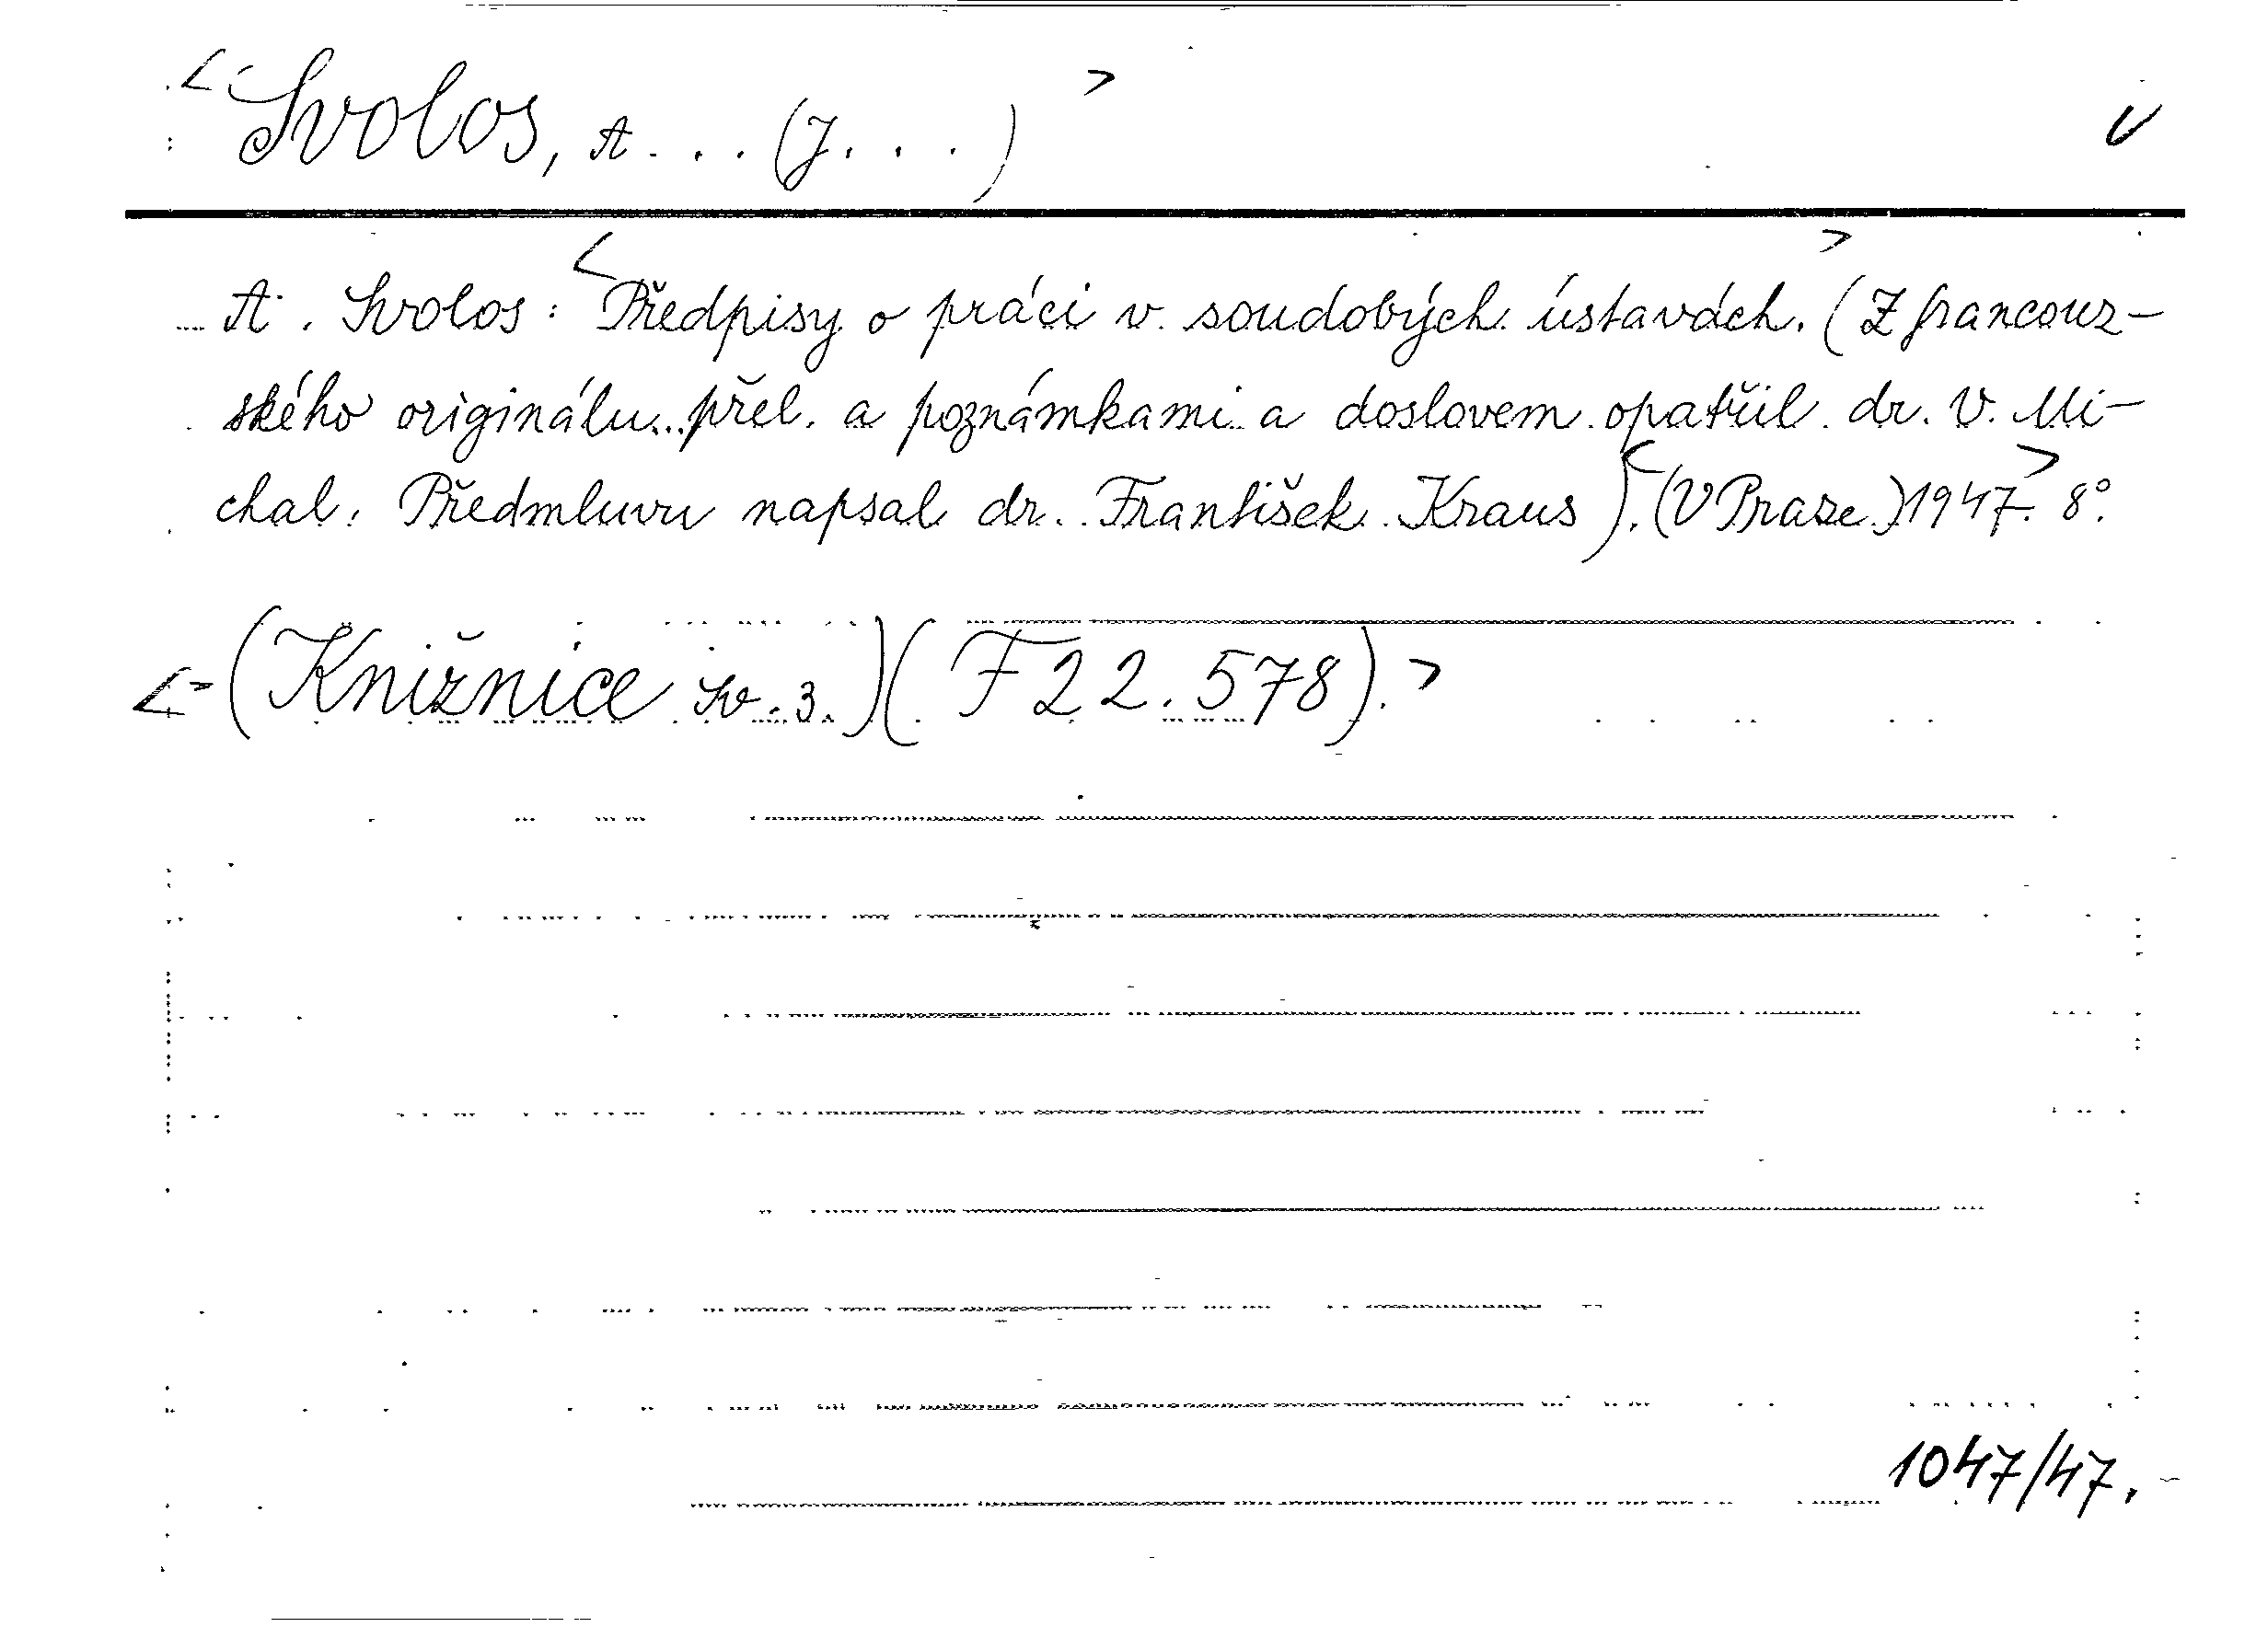 <Svolos, A... (J...)> V
A. Svolos: <Předpisy o práci v soudobých ústavách.> (Z francouz-
ského originálu přel. a poznámkami a doslovem opatřil dr. V. Mi-
chal. Předmluvu napsal dr. František Kraus). <(V Praze) 1947.> 8°.
<-(Knižnice sv. 3.)(F 22.578).>
1047/47.